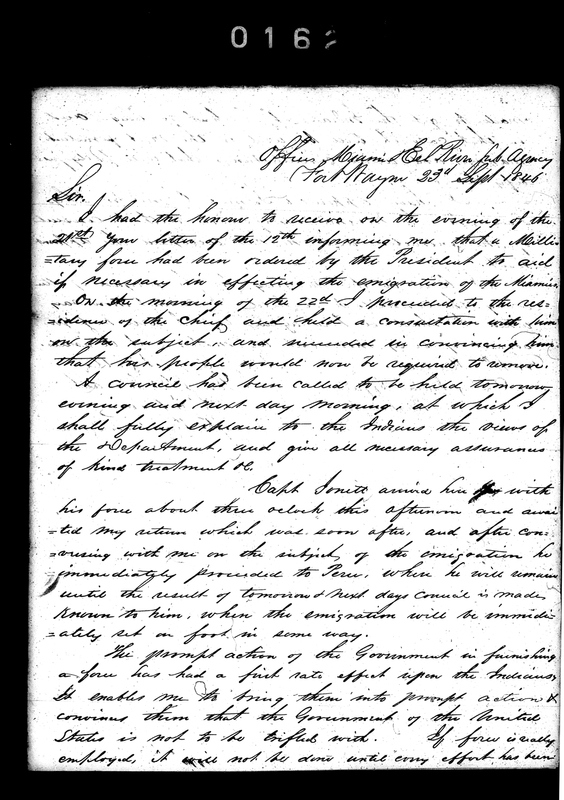 0162
Office Miami & Eel River Sub. Agency
Fort Wayne 23d Sept 1846
Sir,
I had the honour to receive on the evening of the
21st Your letter of the 12th informing me that a Milli
=tary force had been ordered by the President to aid
if necessary in effecting the emigration of the Miamies.
On the morning of the 22d I proceeded to the res-
=idence of the Chief and held a consultation with him
on the subject, and succeeded in convincing him
that his people would now be required to remove.
A council had been called to be held tomorrow
evening and next day morning, at which I
shall fully explain to the Indians the views of
the Department, and give all necessary assurances
of kind treatment &c.
Capt Jouett arrived here with
his force about three oclock this afternoon and awai
=ted my return which was soon after, and after con-
=versing with me on the subject of the emigration he
=immediately proceeded to Peru, where he will remain
until the result of tomorrow & next days Council is made
Known to him, when the emigration will be immidi-
=ately set on foot in some way.
The prompt action of the Government in furnishing
a force has had a first rate effect upon the Indians,
It enables me to bring them into prompt action &
convinces them that the Government of the United
States is not to be trifled with. If force is really
employed, it will not be done until every effort has been